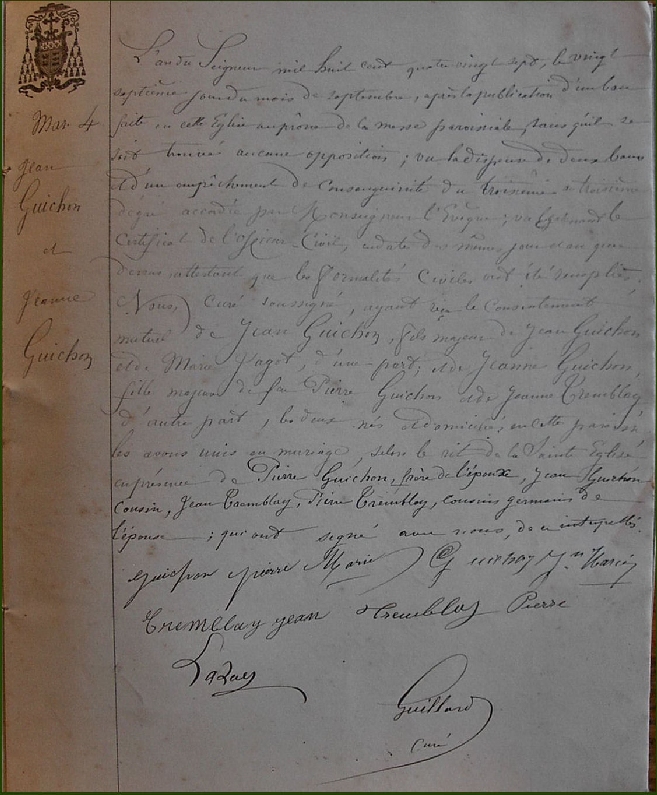 Mar 4
Jean
Guichon
et
Jeanne
Guichon
L'an du Seigneur mil huit cent quatre vingt sept, le vingt
septième jour du mois de septembre, après la publication d'un ban
faite en cette Eglise au prône de la messe paroissiale, sans qu'il se
soit trouvé aucune opposition; vu la dispense de deux bans
et d'un empêchement de Consanguinité du troisième au troisième
degré accordée par Monseigneur l'Evêque; vu également le
Certificat de l'officier Civil, en date du même jour que
dessus attestant que les formalités Civiles ont été remplies.
Nous, Curé soussigné, ayant vu le Consentement
mutuel de Jean Guichon, fils majeur de Jean Guichon
et de Marie Pagot, d'une part; et de Jeanne Guichon,
fille majeure de feu Pierre Guichon et de Jeanne Tremblay
d'autre part, les deux nés et domiciliés en cette paroisse
les avons unis en mariage, selon le rit de la Sainte Eglise
en présence de Pierre Guichon, frère de l'épouse, Jean Guichon
cousin, Jean Tremblay, Pierre Tremblay, cousins germains de
l'épouse; qui ont signé avec nous, de ce interpellés.
guichon pierre Marie Guichon Jn Marie
Tremblay jean Tremblay Pierre
Guillard
curé